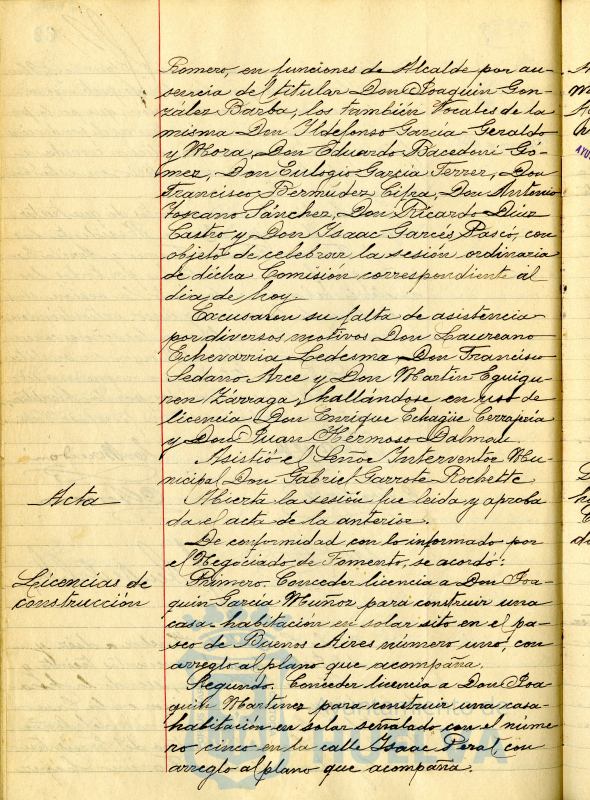 Romero, en funciones de Alcalde por au-
sencia del titular Don Joaquín Gon-
zález Barba, los también Vocales de la
misma Don Ildefonso García-Geraldo
y Mora, Don Eduardo Bacedoni Gó-
mez, Don Eulogio García Ferrer, Don
Francisco Bermúdez Cifra, Don Antonio
Toscano Sánchez, Don Ricardo Díaz
Castro y Don Isaac Garcés Pascó, con
objeto de celebrar la sesión ordinaria
de dicha Comisión correspondiente al
dia de hoy.
Excusaron su falta de asistencia
por diversos motivos Don Laureano
Echevarria Ledesma, Don Francisco
Sedano Arce y Don Martín Eguigu-
ren Zárraga, hallándose en uso de
licencia Don Enrique Echagüe
y Don Juan Hermoso Dalmau.
Asistió el Señor Interventor Mu-
nicipal Don Gabriel Garrote Rochette
Acta
Abierta la sesión fue leida y aproba
da el acta de la anterior.
De conformidad con lo informado por
el Negociado de Fomento, se acordó:
Licencias de
construcción
Primero. Conceder licencia a Don Joa-
quín García Muñoz para construir una
casa-habitación en solar sito en el pa-
seo de Buenos Aires número uno, con
arreglo al plano que acompaña.
Segundo. Conceder licencia a Don Joa-
quín Martínez para construir una casa-
habitación en solar señalado con el núme
ro cinco en la calle Isaac Peral, con
arreglo al plano que acompaña.
HUELVA